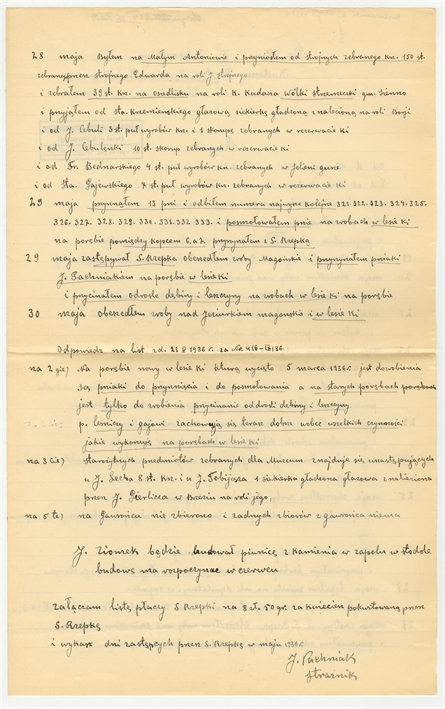 28 maja Byłem na Małym Antoniowie i przyniosłem od strojnych zebranego Krz. 150 st.
zebrany przez strojnego Edwarda na roli J strojnego
i zebrałem 39 st. Krz. na osiedlisku na roli K. Kudasa Wólki gm. Sienno
i przyjąłem od sta. Krzemienskiego głazową siekierkę gładzoną znalezioną na roli Borji
i od J. Cebuli 3 st. puł wyrobów Krz. i 1 skorupę zebranych w rezerwacie Ki
i od J. Cebulenki 10 st. skorup zebranych w rezerwacie Ki
i od Fr. Bednarskiego 4 st. puł wyrobów Krz. zebranych w Jeleni
i od sta. Gajewskiego 7 st. puł wyrobów Krz. zebranych w rezerwacie Ki
29 maja przyrznąłem 13 pni i odbiłem numera kolejne 321. 322. 323. 324. 325.
326. 327. 328. 329. 330. 331. 332. 333 i posmołowałem pnie na zrobach w lesie Ki
na porębie pomiędzy kopcem 6. a 7. przyrzynałem z S. Rzepką
29 maja zastępywał S. Rzepka obeszedłem zroby Magońskie i przyrzynałem pniaki
J. Pachniakiem na porębie w lesie Ki
i przycinałem odrośle dębiny i leszczyny na zrobach w lesie Ki na porębie
30 maja obeszedłem zroby nad magonskie i w lesie Ki
Odpowiedz na list z d. 1936 r. za Nr.
na 2 gie) Na porębie nowy w lesie Ki kturą wycięto 5 marca 1936 r. jest dozrobienia
są pniaki do przyrznięcia i do posmołowania a na starych porębach
jest tylko do zrobienia przycinanie oddrośli dębiny i leszczyny
p. leśniczy i gajowi zachowują się teraz dobrze wobec wszelkich czynności
jakie wykonyję na porębach w lesie Ki
na 3 cie) starożytnych przedmiotów zebranych dla Muzeum znajduje się
u J. Lecha 8 st. Krz. i u J. Tobijasza 1 siekierka gładzona głazowa znaleziona
przez J. Gierlica w Brzeziu na roli jego,
na 5 te) na Gawrońcu nie zbierono i żadnych zbiorów z gawrońca niema
J. Ziomek będzie budował piwnicę z Kamienia w zapolu w stodole
budowę ma rozpoczynać w czerwcu
załączam listę płaczy S Rzepki na 8 zł. 50 gr. za kwiecień pokwitowaną przez
S. Rzepkę
i wykaz dni zastępczych przez S. Rzepkę w maju 1936 r.
J. Pachniak
strażnik